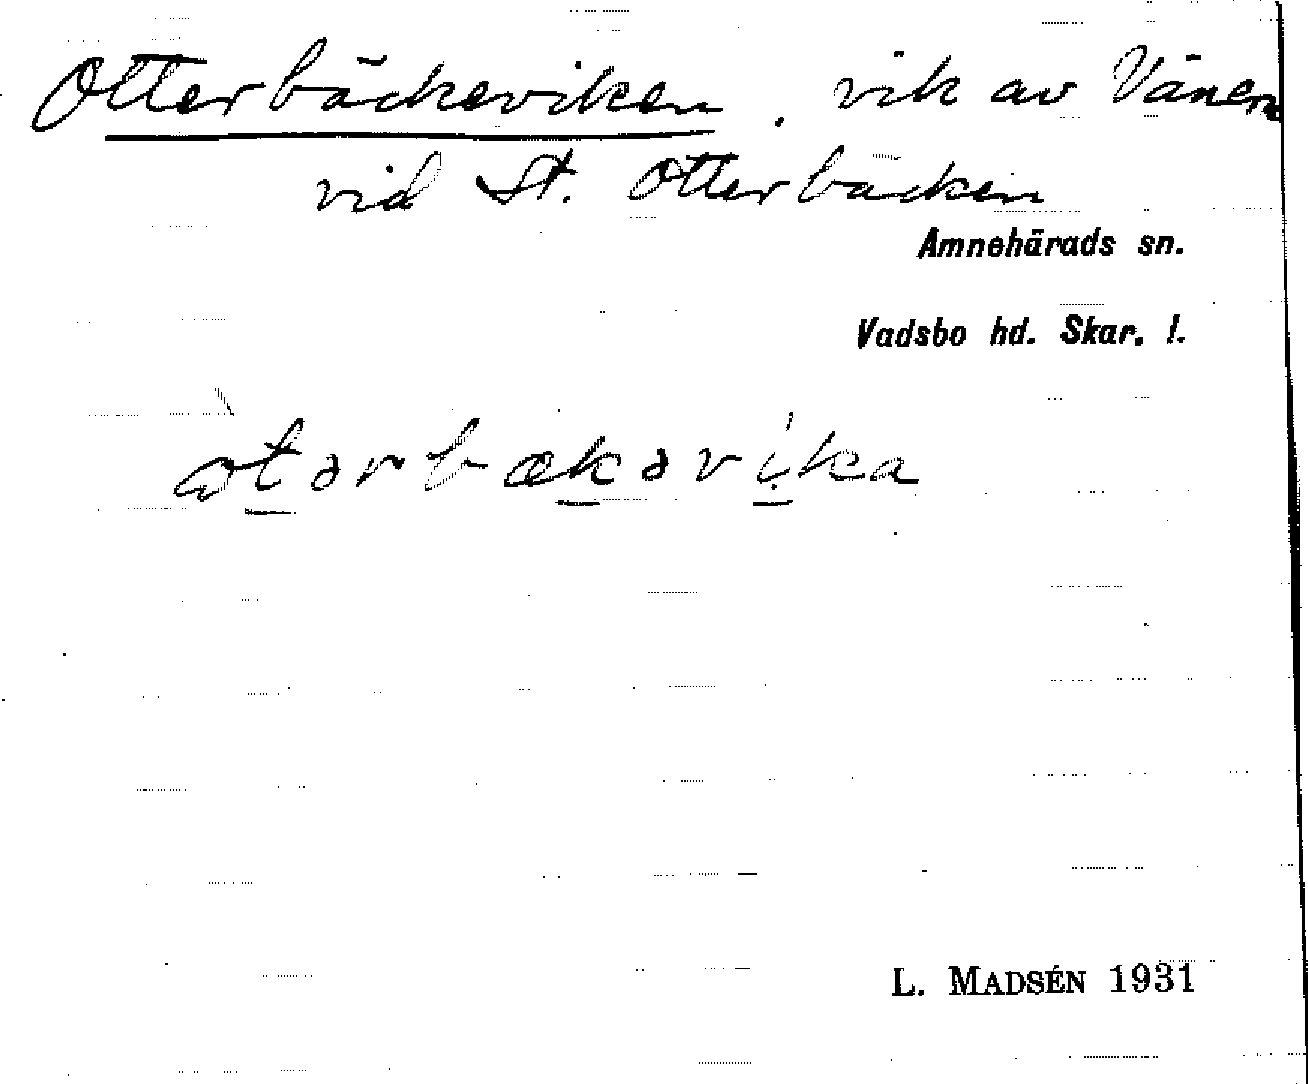 Otterbäckeviken, vik av Vänern
vid St. Otterbäcken
Amnehärads sn.
Vadsbo hd. Skar. l.
ὰtərbækəvika
L. MADSÉN 1931